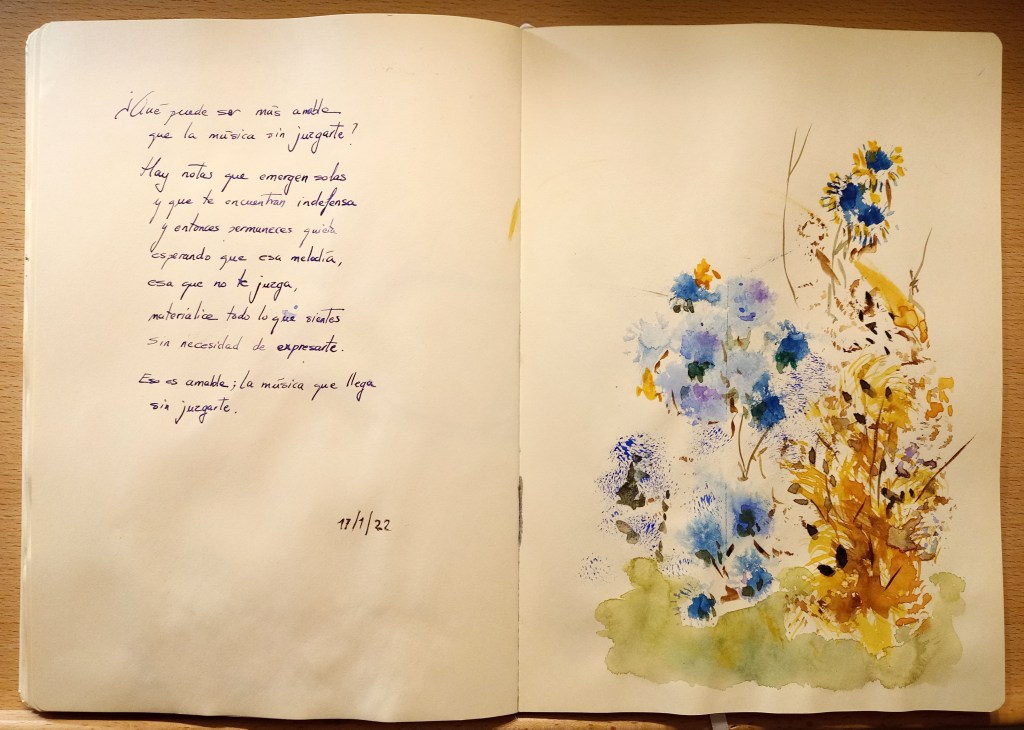 ¿Qué puede ser más amable
que la música sin juzgarte?
Hay notas que emergen solas
y que te encuentran indefensa
y entonces permaneces quieta
esperando que esa melodía,
esa que no te juzga,
materialice todo lo que sientes
sin necesidad de expresarte.
Eso es amable; la música que llega
sin juzgarte.
17/1/22